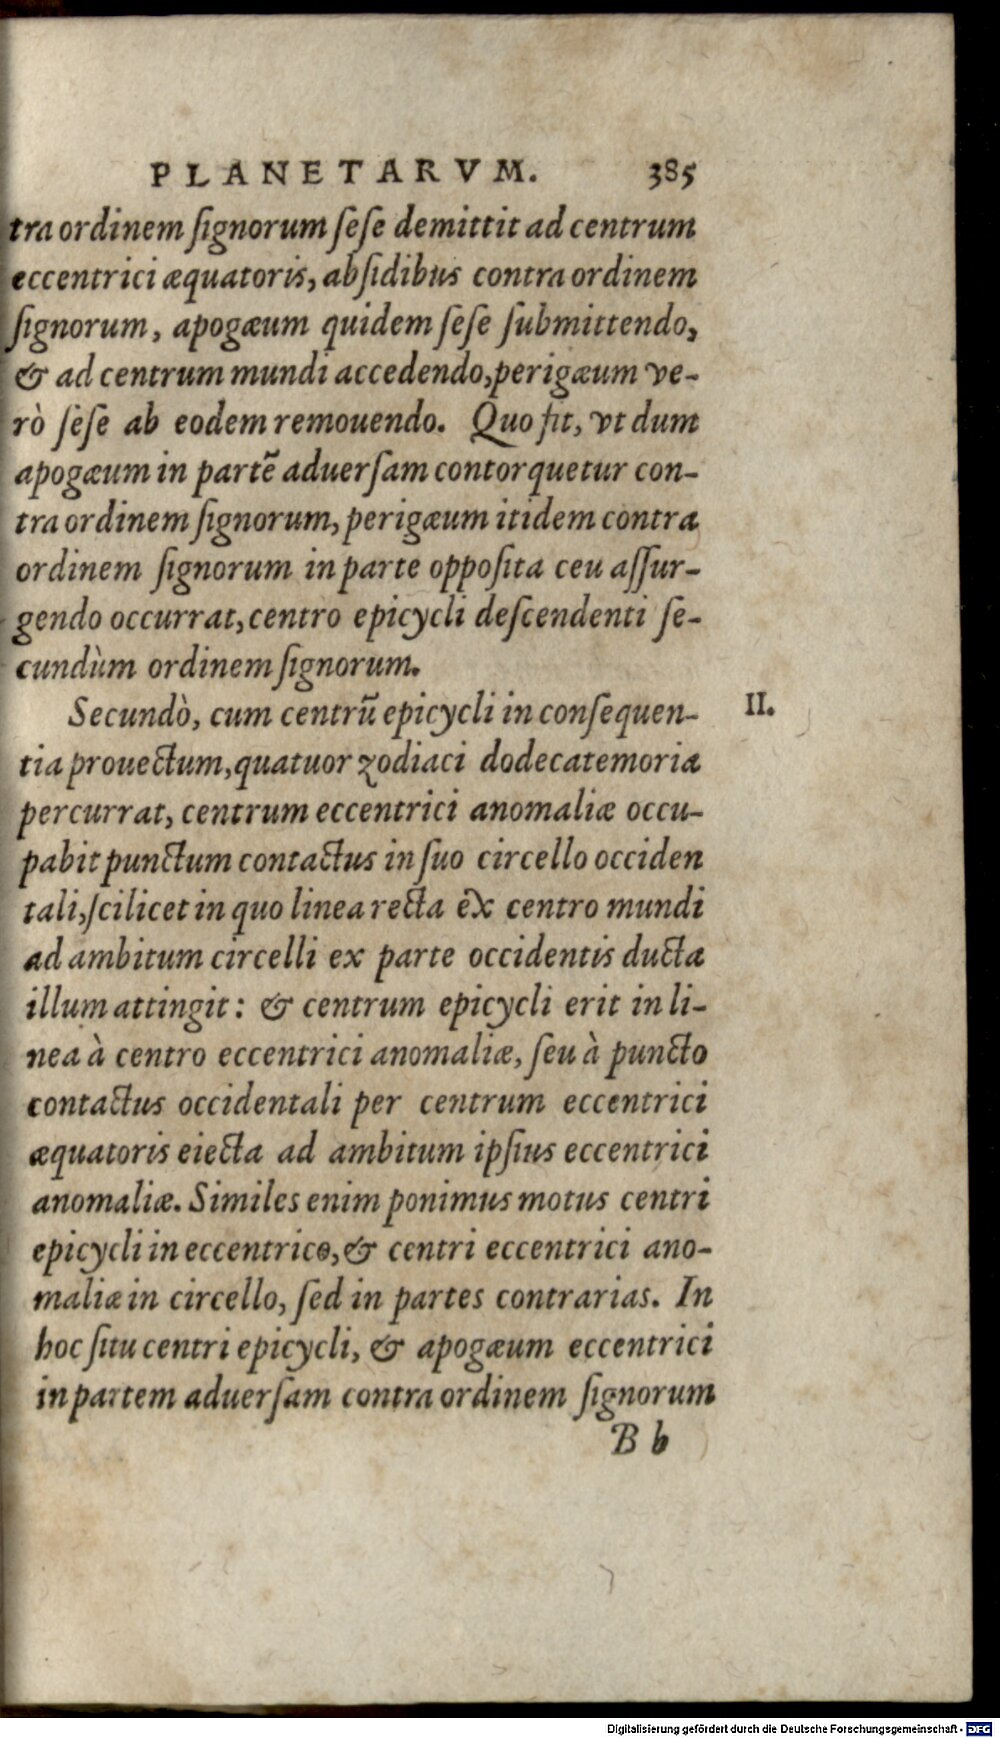 PLANETARVM. 385
tra ordinem ſignorum ſeſe demittit ad centrum
eccentrici æquatoris, abſidibus contra ordinem
ſignorum, apogæum quidem ſeſe ſubmittendo,
& ad centrum mundi accedendo, perigæum ve-
rò ſeſe ab eodem remouendo. Quo fit, vt dum
apogæum in partẽ aduerſam contorquetur con-
tra ordinem ſignorum, perigæum itidem contra
ordinem ſignorum in parte oppoſita ceu aſſur-
gendo occurrat, centro epicycli deſcendenti ſe-
cundùm ordinem ſignorum.
Secundò, cum centrũ epicycli in conſequen-
II.
tia prouectum, quatuor zodiaci dodecatemoria
percurrat, centrum eccentrici anomaliæ occu-
pabit punctum contactus in ſuo circello occiden
tali, ſcilicet in quo linea recta ex centro mundi
ad ambitum circelli ex parte occidentis ducta
illum attingit: & centrum epicycli erit in li-
nea à centro eccentrici anomaliæ, ſeu à puncto
contactus occidentali per centrum eccentrici
æquatoris eiecta ad ambitum ipſius eccentrici
anomaliæ. Similes enim ponimus motus centri
epicycli in eccentrico, & centri eccentrici ano-
maliæ in circello, ſed in partes contrarias. In
hoc ſitu centri epicycli, & apogæum eccentrici
in partem aduerſam contra ordinem ſignorum
B b
Digitalisierung gefördert durch die Deutsche Forschungsgemeinschaft - DFG